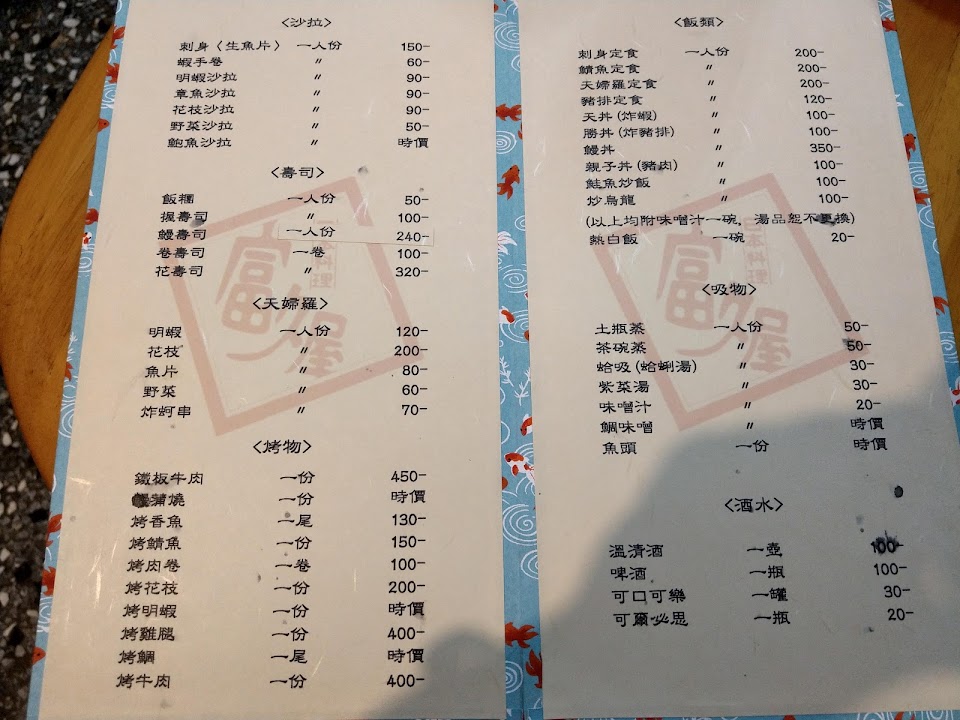 <沙拉>
刺身〈生魚片〉 一人份 150-
蝦手卷 〃 60-
明蝦沙拉 〃 90-
章魚沙拉 〃 90-
花枝沙拉 〃 90-
野菜沙拉 〃 50-
鮑魚沙拉 〃 時價
<壽司>
飯糰 一人份 50-
握壽司 〃 100-
鰻壽司 一人份 240-
卷壽司 一卷 100-
花壽司 〃 320-
<天婦羅>
明蝦 一人份 120-
花枝 〃 200-
魚片 〃 80-
野菜 〃 60-
炸蚵串 〃 70-
<烤物>
鐵板牛肉 一份 450-
蒲燒 一份 時價
烤香魚 一尾 130-
烤鯖魚 一份 150-
烤肉卷 一卷 100-
烤花枝 一份 200-
烤明蝦 一份 時價
烤雞腿 一份 400-
烤鯛 一尾 時價
烤牛肉 一份 400-
日本料理
富屋
<飯類>
刺身定食 一人份 200-
鯖魚定食 〃 200-
天婦羅定食 〃 200-
豬排定食 〃 120-
天丼(炸蝦) 〃 100-
勝丼(炸豬排) 〃 100-
鰻丼 〃 350-
親子丼(豬肉) 〃 100-
鮭魚炒飯 〃 100-
炒烏龍 〃 100-
(以上均附味噌汁一碗，湯品恕不更換)
熱白飯 一碗 20-
<吸物>
土瓶蒸 一人份 50-
茶碗蒸 〃 50-
蛤吸(蛤蜊湯) 〃 30-
紫菜湯 〃 30-
味噌汁 〃 20-
鯛味噌 〃 時價
魚頭 一份 時價
<酒水>
溫清酒 一壺 100-
啤酒 一瓶 100-
可口可樂 一罐 30-
可爾必思 一瓶 20-
日本料理
富屋